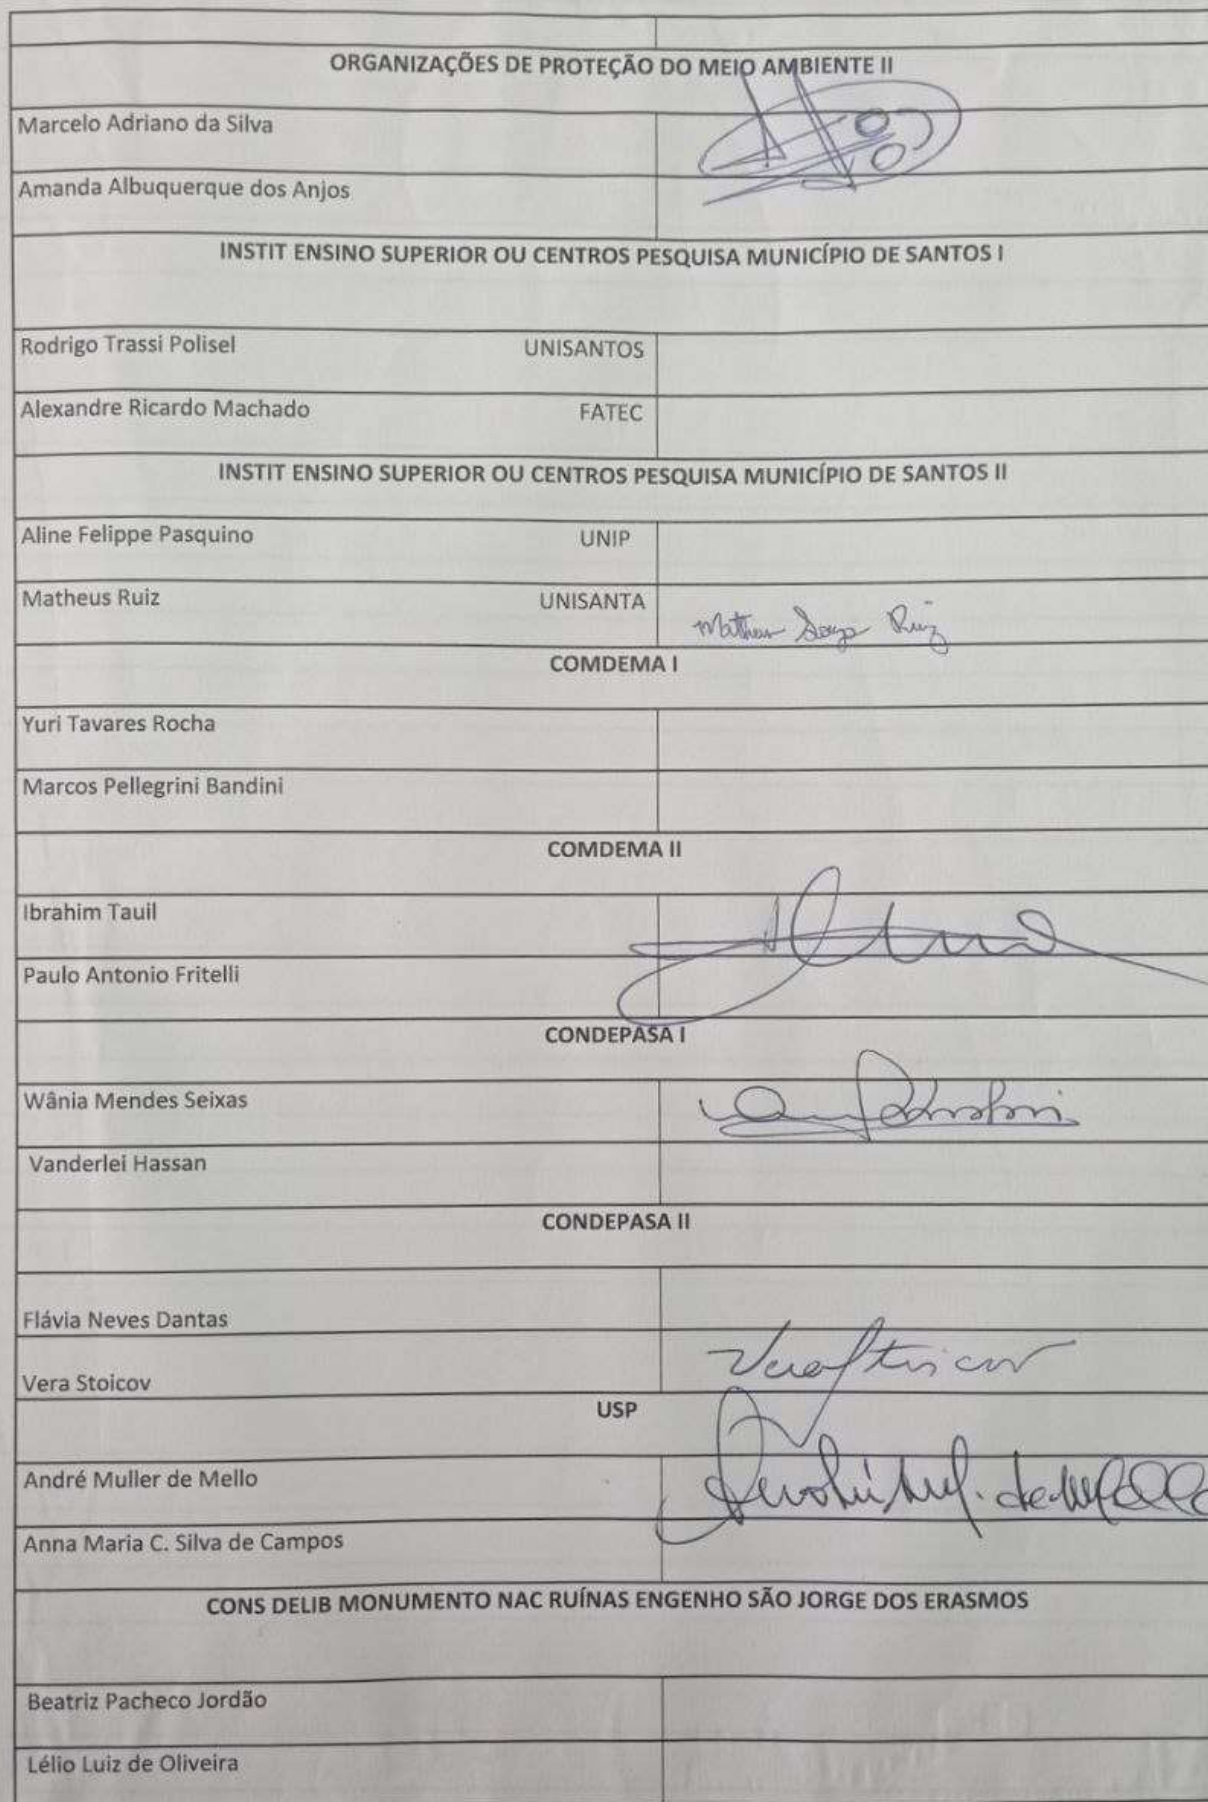 ORGANIZAÇÕES DE PROTEÇÃO DO MEIO AMBIENTE II
Marcelo Adriano da Silva
Amanda Albuquerque dos Anjos
INSTIT ENSINO SUPERIOR OU CENTROS PESQUISA MUNICÍPIO DE SANTOS I
Rodrigo Trassi Polisel UNISANTOS
Alexandre Ricardo Machado FATEC
INSTIT ENSINO SUPERIOR OU CENTROS PESQUISA MUNICÍPIO DE SANTOS II
Aline Felippe Pasquino UNIP
Matheus Ruiz UNISANTA
Matheus Ruiz
COMDEMA I
Yuri Tavares Rocha
Marcos Pellegrini Bandini
COMDEMA II
Ibrahim Tauil
Paulo Antonio Fritelli
CONDEPASA I
Wânia Mendes Seixas
Vanderlei Hassan
CONDEPASA II
Flávia Neves Dantas
Vera Stoicov
USP
André Muller de Mello
Anna Maria C. Silva de Campos
CONS DELIB MONUMENTO NAC RUÍNAS ENGENHO SÃO JORGE DOS ERASMOS
Beatriz Pacheco Jordão
Lélio Luiz de Oliveira